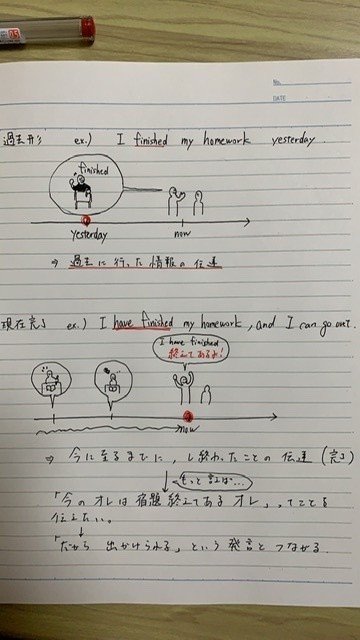 No.
DATE
過去形 ex.) I finished my homework yesterday.
finished
yesterday now
⇒ 過去に行った情報の伝達
現在完了 ex.) I have finished my homework, and I can go out.
I have finished
終えてあるよ!
now
⇒ 今に至るまでに、し終わったことの伝達 (完了)
もっと言えば...
「今のオレは宿題終えてあるオレ」ってことを
伝えたい。
↓
「だから 出かけられる」という発言とつながる。